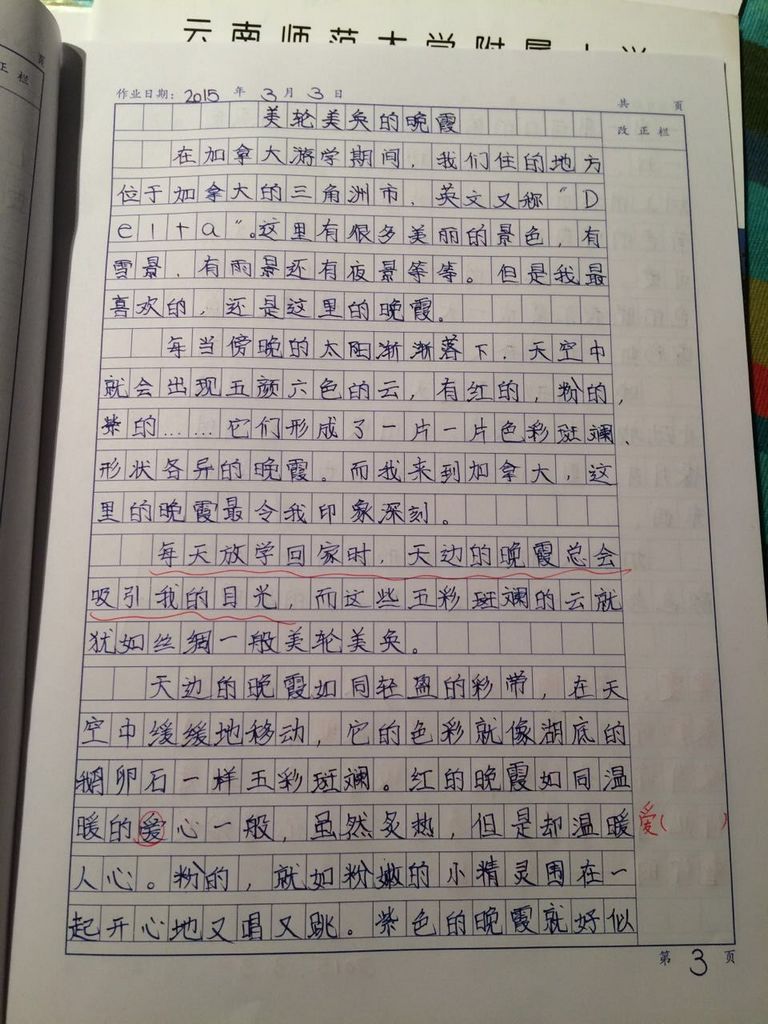 云南师范大学附属小学
正栏
页
作业日期: 2015 年 3 月 3 日
共 页
改正栏
美轮美奂的晚霞
在加拿大游学期间，我们住的地方
位于加拿大的三角洲市，英文又称“D
elta”。这里有很多美丽的景色，有
雪景，有雨景还有夜景等等。但是我最
喜欢的，还是这里的晚霞。
每当傍晚的太阳渐渐落下，天空中
就会出现五颜六色的云，有红的，粉的，
紫的……它们形成了一片一片色彩斑斓、
形状各异的晚霞。而我来到加拿大，这
里的晚霞最令我印象深刻。
每天放学回家时，天边的晚霞总会
吸引我的目光，而这些五彩斑斓的云就
犹如丝绸一般美轮美奂。
天边的晚霞如同轻盈的彩带，在天
空中缓缓地移动，它的色彩就像湖底的
鹅卵石一样五彩斑斓。红的晚霞如同温
暖的爱心一般，虽然炙热，但是却温暖
爱( )
人心。粉的，就如粉嫩的小精灵围在一
起开心地又唱又跳。紫色的晚霞就好似
第 3 页